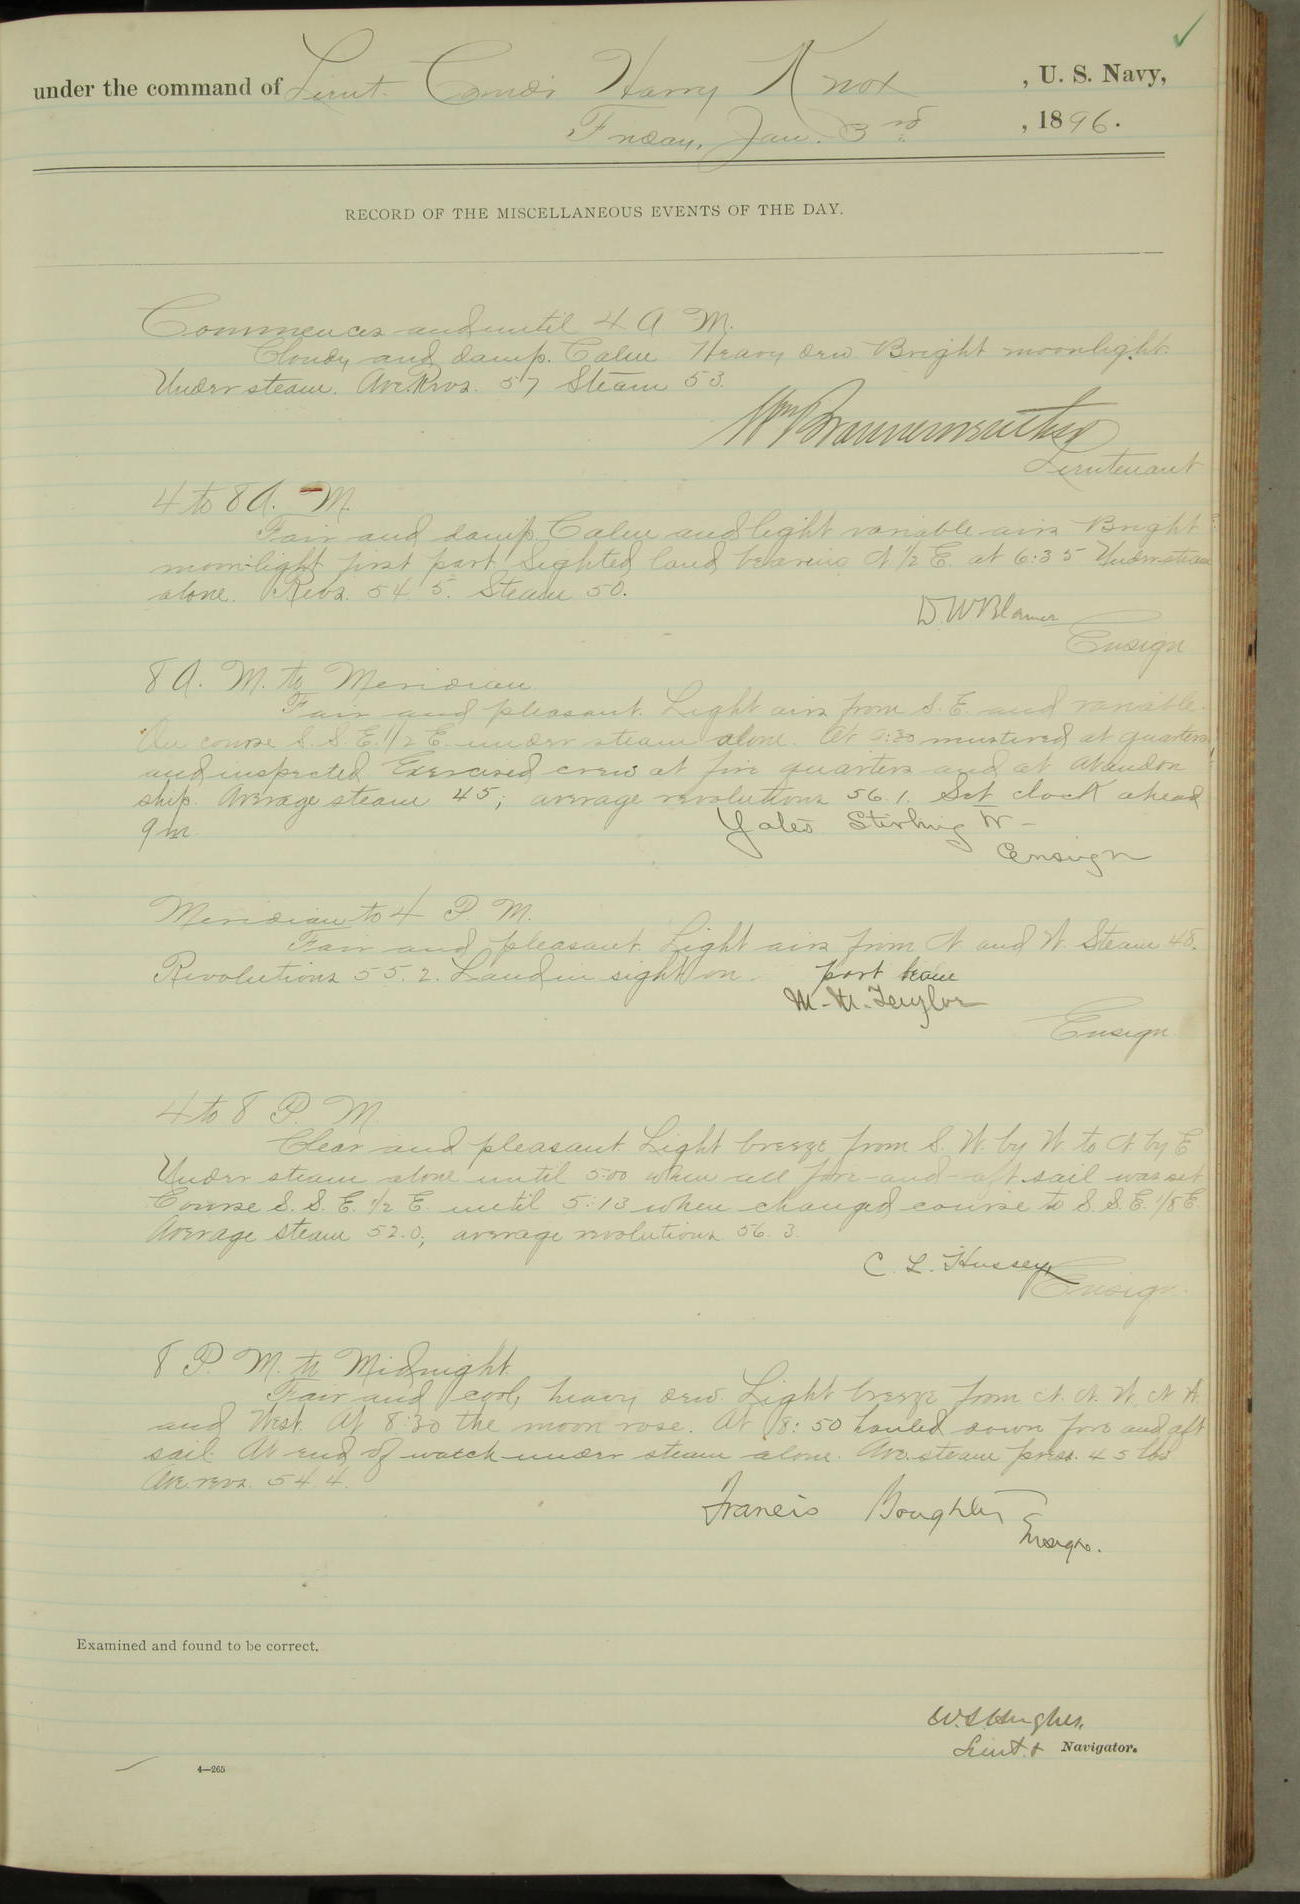 under the command of Lieut. Comdr Harry Knox, U. S. Navy,
Friday, Jan. 3rd, 1896.
RECORD OF THE MISCELLANEOUS EVENTS OF THE DAY.
Commences and until 4 A M.
Cloudy and damp. Calm Heavy dew Bright moonlight.
Under steam. Ave. Revs. 57 Steam 53.
Wm
Lieutenant
4 to 8 A. M.
Fair and damp. Calm and light variable airs Bright
moon-light first part. Sighted land bearing N 1/2 E. at 6:35 Under steam
alone. Revs. 54.5. Steam 50.
D. W. Blamer
Ensign
8 A. M. to Meridian
Fair and pleasant. Light airs from S. E. and variable.
On course S. S. E. 1/2 E. under steam alone. At 9:30 mustered at quarters
and inspected. Exercised crew at fire quarters and at abandon
ship. Average steam 45; average revolutions 56.1. Set clock ahead
9 m
Yates Stirling Jr -
Ensign
Meridian to 4 P. M.
Fair and pleasant. Light airs from N. and W. Steam 48.
Revolutions 55.2. Land in sight on port beam
M. M. Taylor
Ensign
4 to 8 P. M.
Clear and pleasant. Light breeze from S. W. by W. to N by E
Under steam alone until 5:00 when all fore-and-aft sail was set
Course S. S. E. 1/2 E. until 5:13 when changed course to S. S. E. 1/8 E
Average steam 52.0; average revolutions 56.3.
C. L. Hussey
Ensign
8 P. M. to Midnight.
Fair and cool, heavy dew. Light breeze from N. N. W, N. W
and West. At 8:30 the moon rose. At 8:50 hauled down fore and aft
sail. At end of watch under steam alone. Av. steam press. 45 lbs
Ave. revs. 54.4.
Francis Boughter
Ensign.
Examined and found to be correct.
W. S. Hughes,
Lieut. & Navigator.
4—265